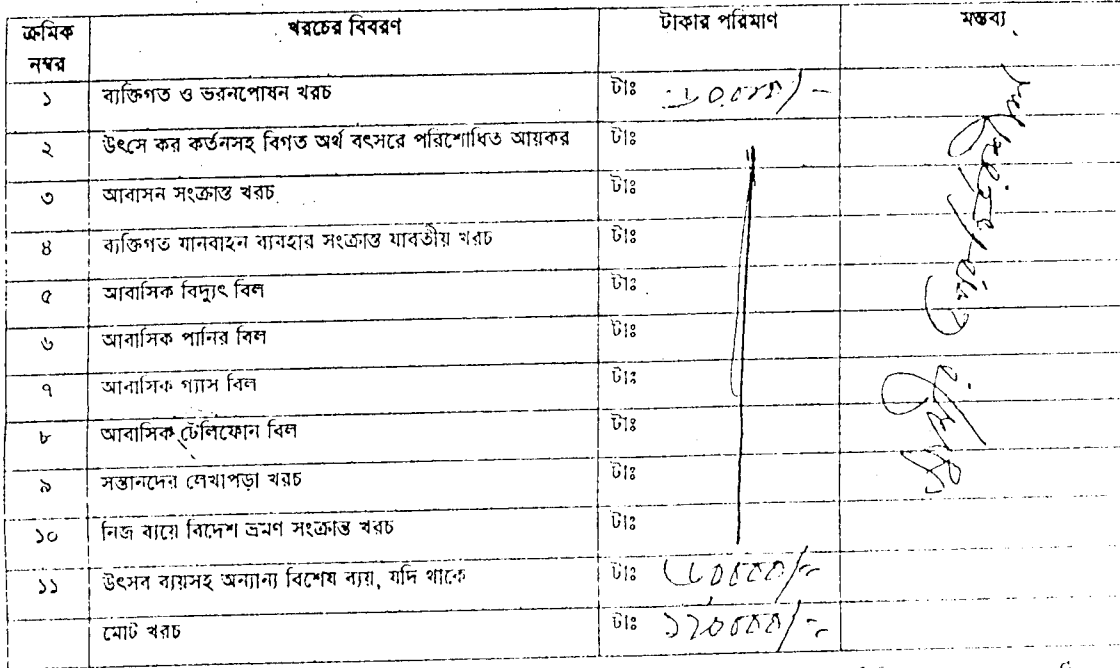 ক্রমিক নম্বর খরচের বিবরণ টাকার পরিমাণ মন্তব্য
১ ব্যক্তিগত ও ভরনপোষন খরচ টাঃ
২ উৎসে কর কর্তনসহ বিগত অর্থ বৎসরে পরিশোধিত আয়কর টাঃ
৩ আবাসন সংক্রান্ত খরচ টাঃ
৪ ব্যক্তিগত যানবাহন ব্যবহার সংক্রান্ত যাবতীয় খরচ টাঃ
৫ আবাসিক বিদ্যুৎ বিল টাঃ
৬ আবাসিক পানির বিল টাঃ
৭ আবাসিক গ্যাস বিল টাঃ
৮ আবাসিক টেলিফোন বিল টাঃ
৯ সন্তানদের লেখাপড়া খরচ টাঃ
১০ নিজ ব্যয়ে বিদেশ ভ্রমণ সংক্রান্ত খরচ টাঃ
১১ উৎসব ব্যয়সহ অন্যান্য বিশেষ ব্যয়, যদি থাকে টাঃ
মোট খরচ টাঃ